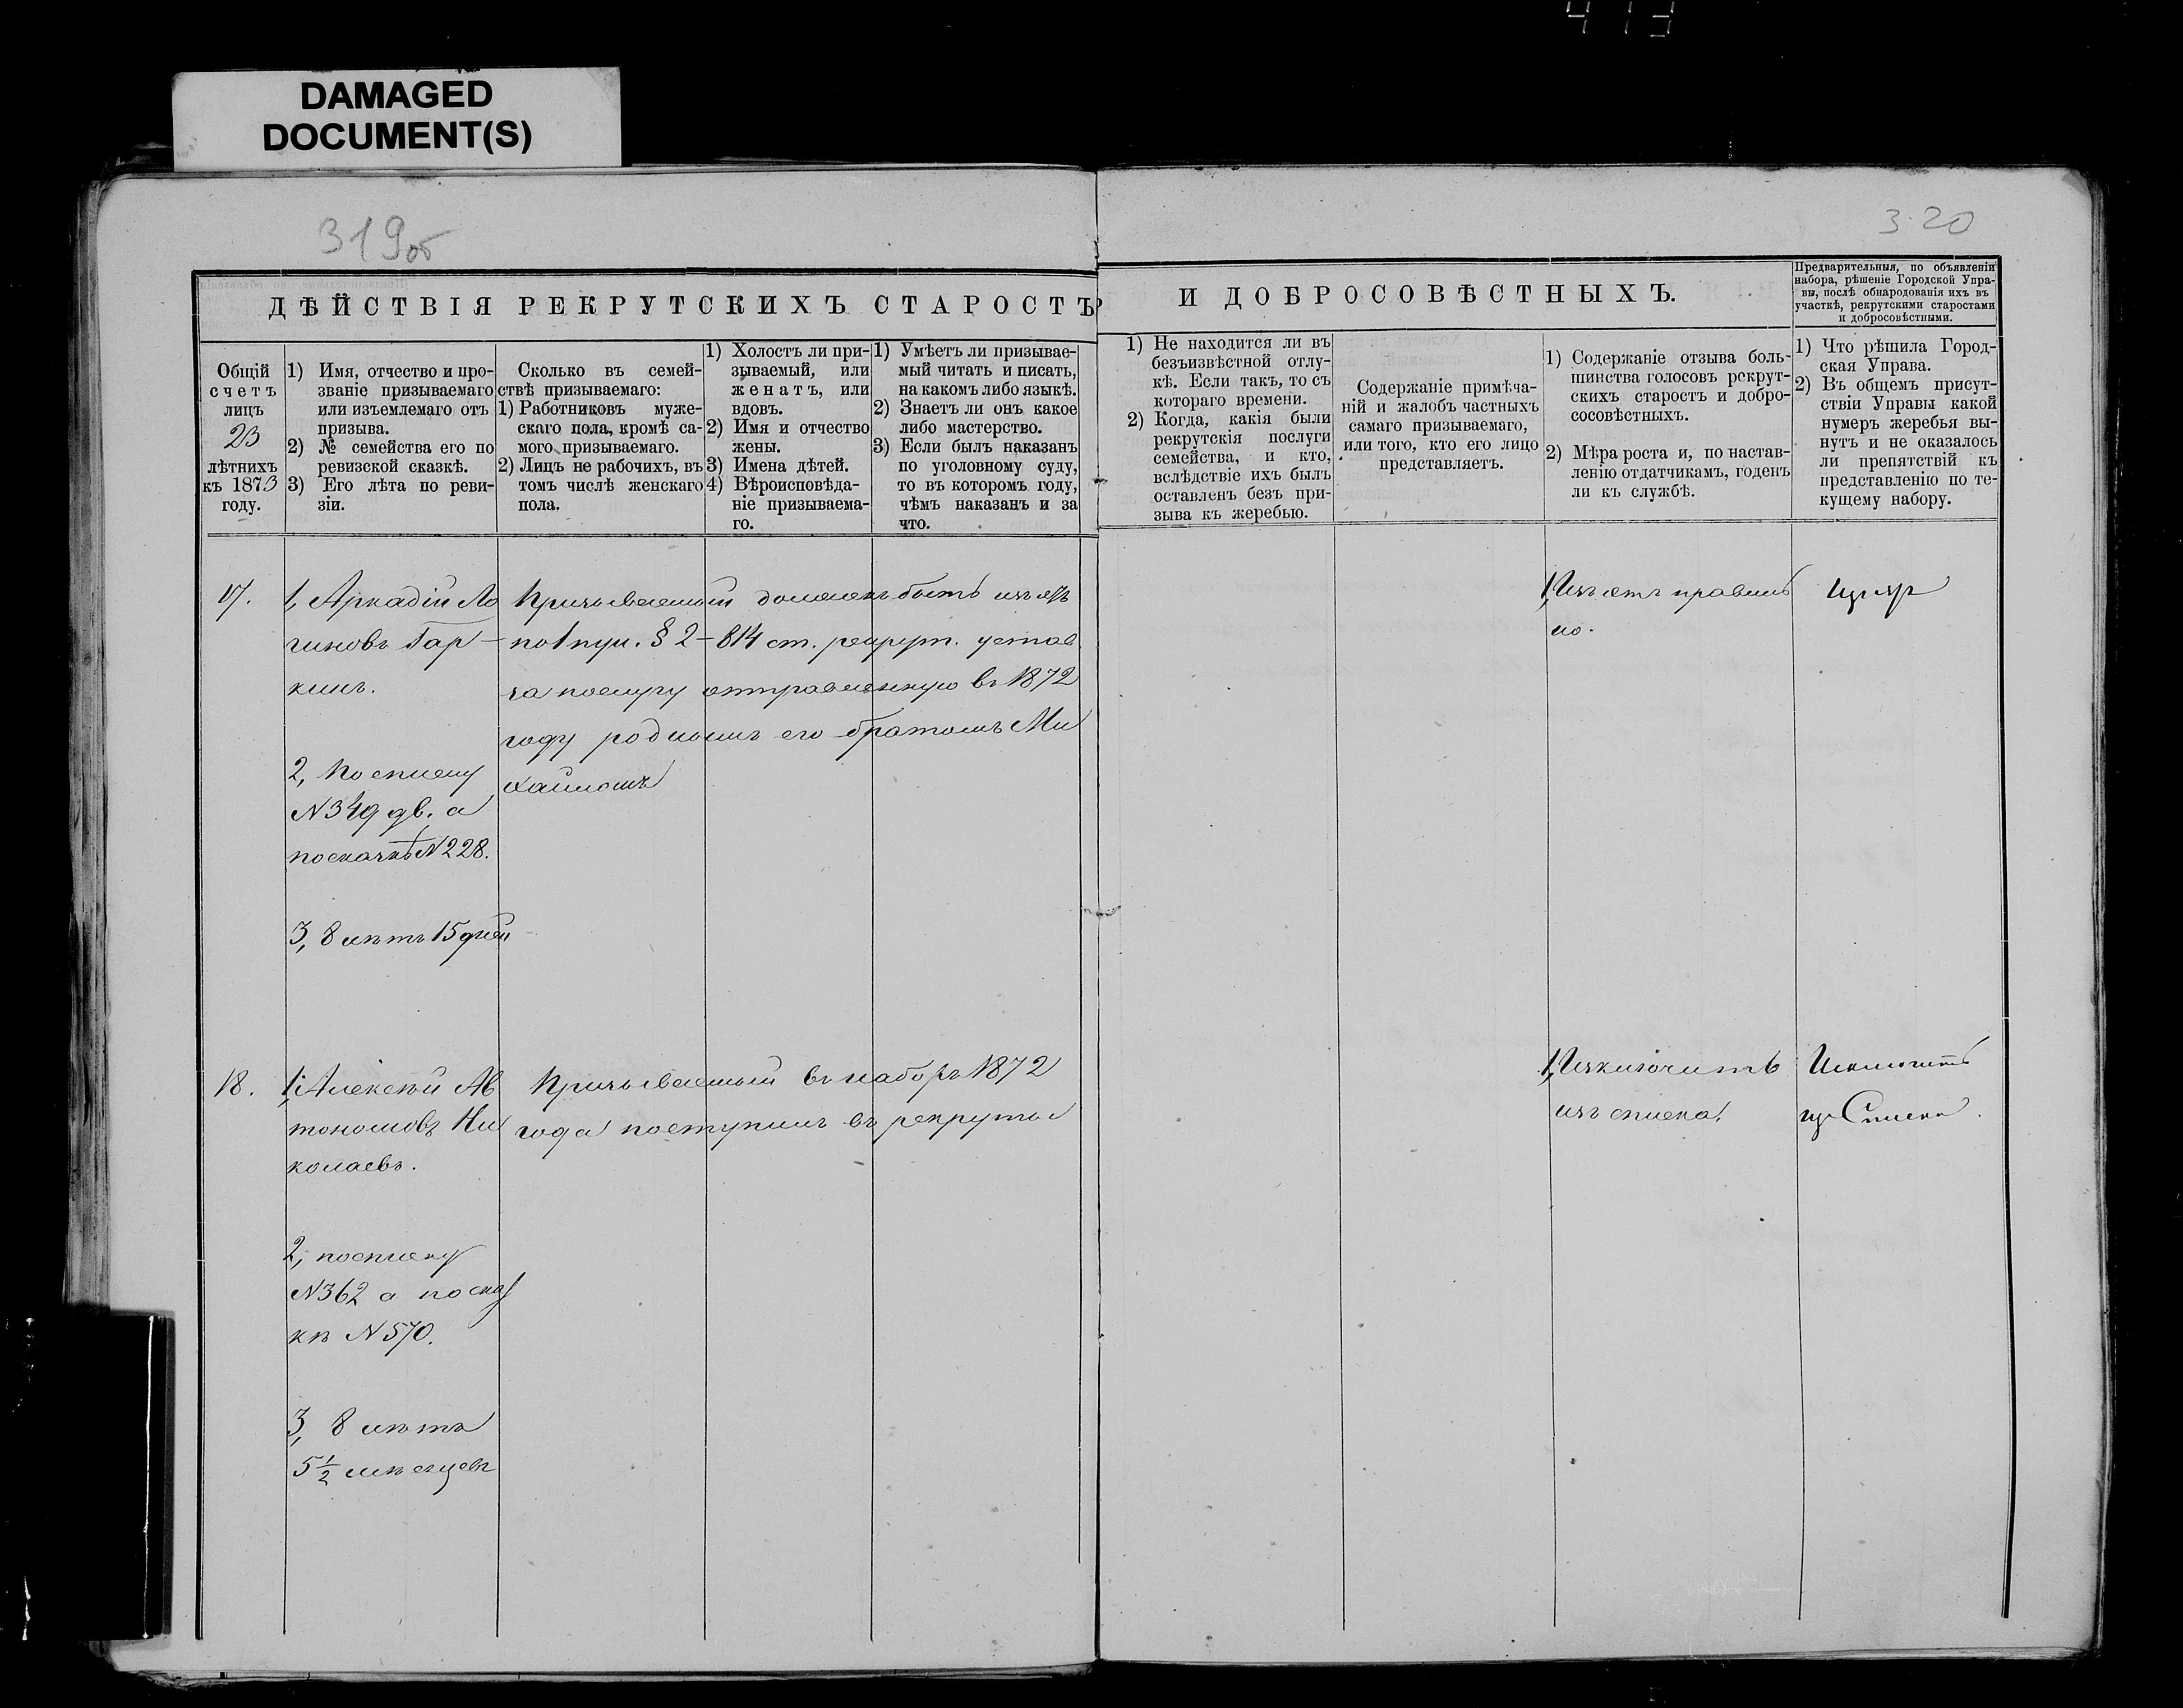 413
DAMAGED
DOCUMENT(S)
319об
320
ДѢЙСТВІЯ РЕКРУТСКИХЪ СТАРОСТЪ
И ДОБРОСОВѢСТНЫХЪ.
Предварительныя, по объявленіи
набора, рѣшеніе Городской Упра-
вы, послѣ обнародованія ихъ въ
участкѣ, рекрутскими старостами
и добросовѣстными.
Общій
счетъ
лицъ
23
лѣтнихъ
къ 1873
году.
1) Имя, отчество и про-
званіе призываемаго
или изъемлемаго отъ
призыва.
2) № семейства его по
ревизской сказкѣ.
3) Его лѣта по реви-
зіи.
Сколько въ семей-
ствѣ призываемаго:
1) Работниковъ муже-
скаго пола, кромѣ са-
мого призываемаго.
2) Лицъ не рабочихъ, въ
томъ числѣ женскаго
пола.
1) Холостъ ли при-
зываемый, или
женатъ, или
вдовъ.
2) Имя и отчество
жены.
3) Имена дѣтей.
4) Вѣроисповѣда-
ніе призываема-
го.
1) Умѣетъ ли призывае-
мый читать и писать,
на какомъ либо языкѣ.
2) Знаетъ ли онъ какое
либо мастерство.
3) Если былъ наказанъ
по уголовному суду,
то въ которомъ году,
чѣмъ наказанъ и за
что.
1) Не находится ли въ
безъизвѣстной отлу-
кѣ. Если такъ, то съ
котораго времени.
2) Когда, какія были
рекрутскія послуги
семейства, и кто,
вслѣдствіе ихъ былъ
оставленъ безъ при-
зыва къ жеребью.
Содержаніе примѣча-
ній и жалобъ частныхъ
самаго призываемаго,
или того, кто его лицо
представляетъ.
1) Содержаніе отзыва боль-
шинства голосовъ рекрут-
скихъ старостъ и добро-
сосовѣстныхъ.
2) Мѣра роста и, по настав-
ленію отдатчикамъ, годенъ
ли къ службѣ.
1) Что рѣшила Город-
ская Управа.
2) Въ общемъ присут-
ствіи Управы какой
нумеръ жеребья вы-
нутъ и не оказалось
ли препятствій къ
представленію по те-
кущему набору.
17.
1, Аркадій Ло
гиновъ Гар-
кинъ.
2, По списку
N349 дв. а
по сказкѣ N228.
3, 8 лѣтъ 15 дней
Призываемый долженъ быть изъятъ
по 1 пун. § 2 - 814 ст. рекрут. устав
за послугу отправленную въ 1872
году роднымъ его братомъ Ми
хаиломъ
1, Изъятъ правиль
но.
18.
1, Алексѣй Ав
тономовъ Ни
колаевъ.
2, по списку
N362 а по сказ
кѣ N570.
3, 8 лѣтъ
5 1/2 мѣсяцевъ
Призываемый въ наборъ 1872
года поступилъ въ рекруты
1, Изключить
изъ списка.
Исключить
изъ Списка.